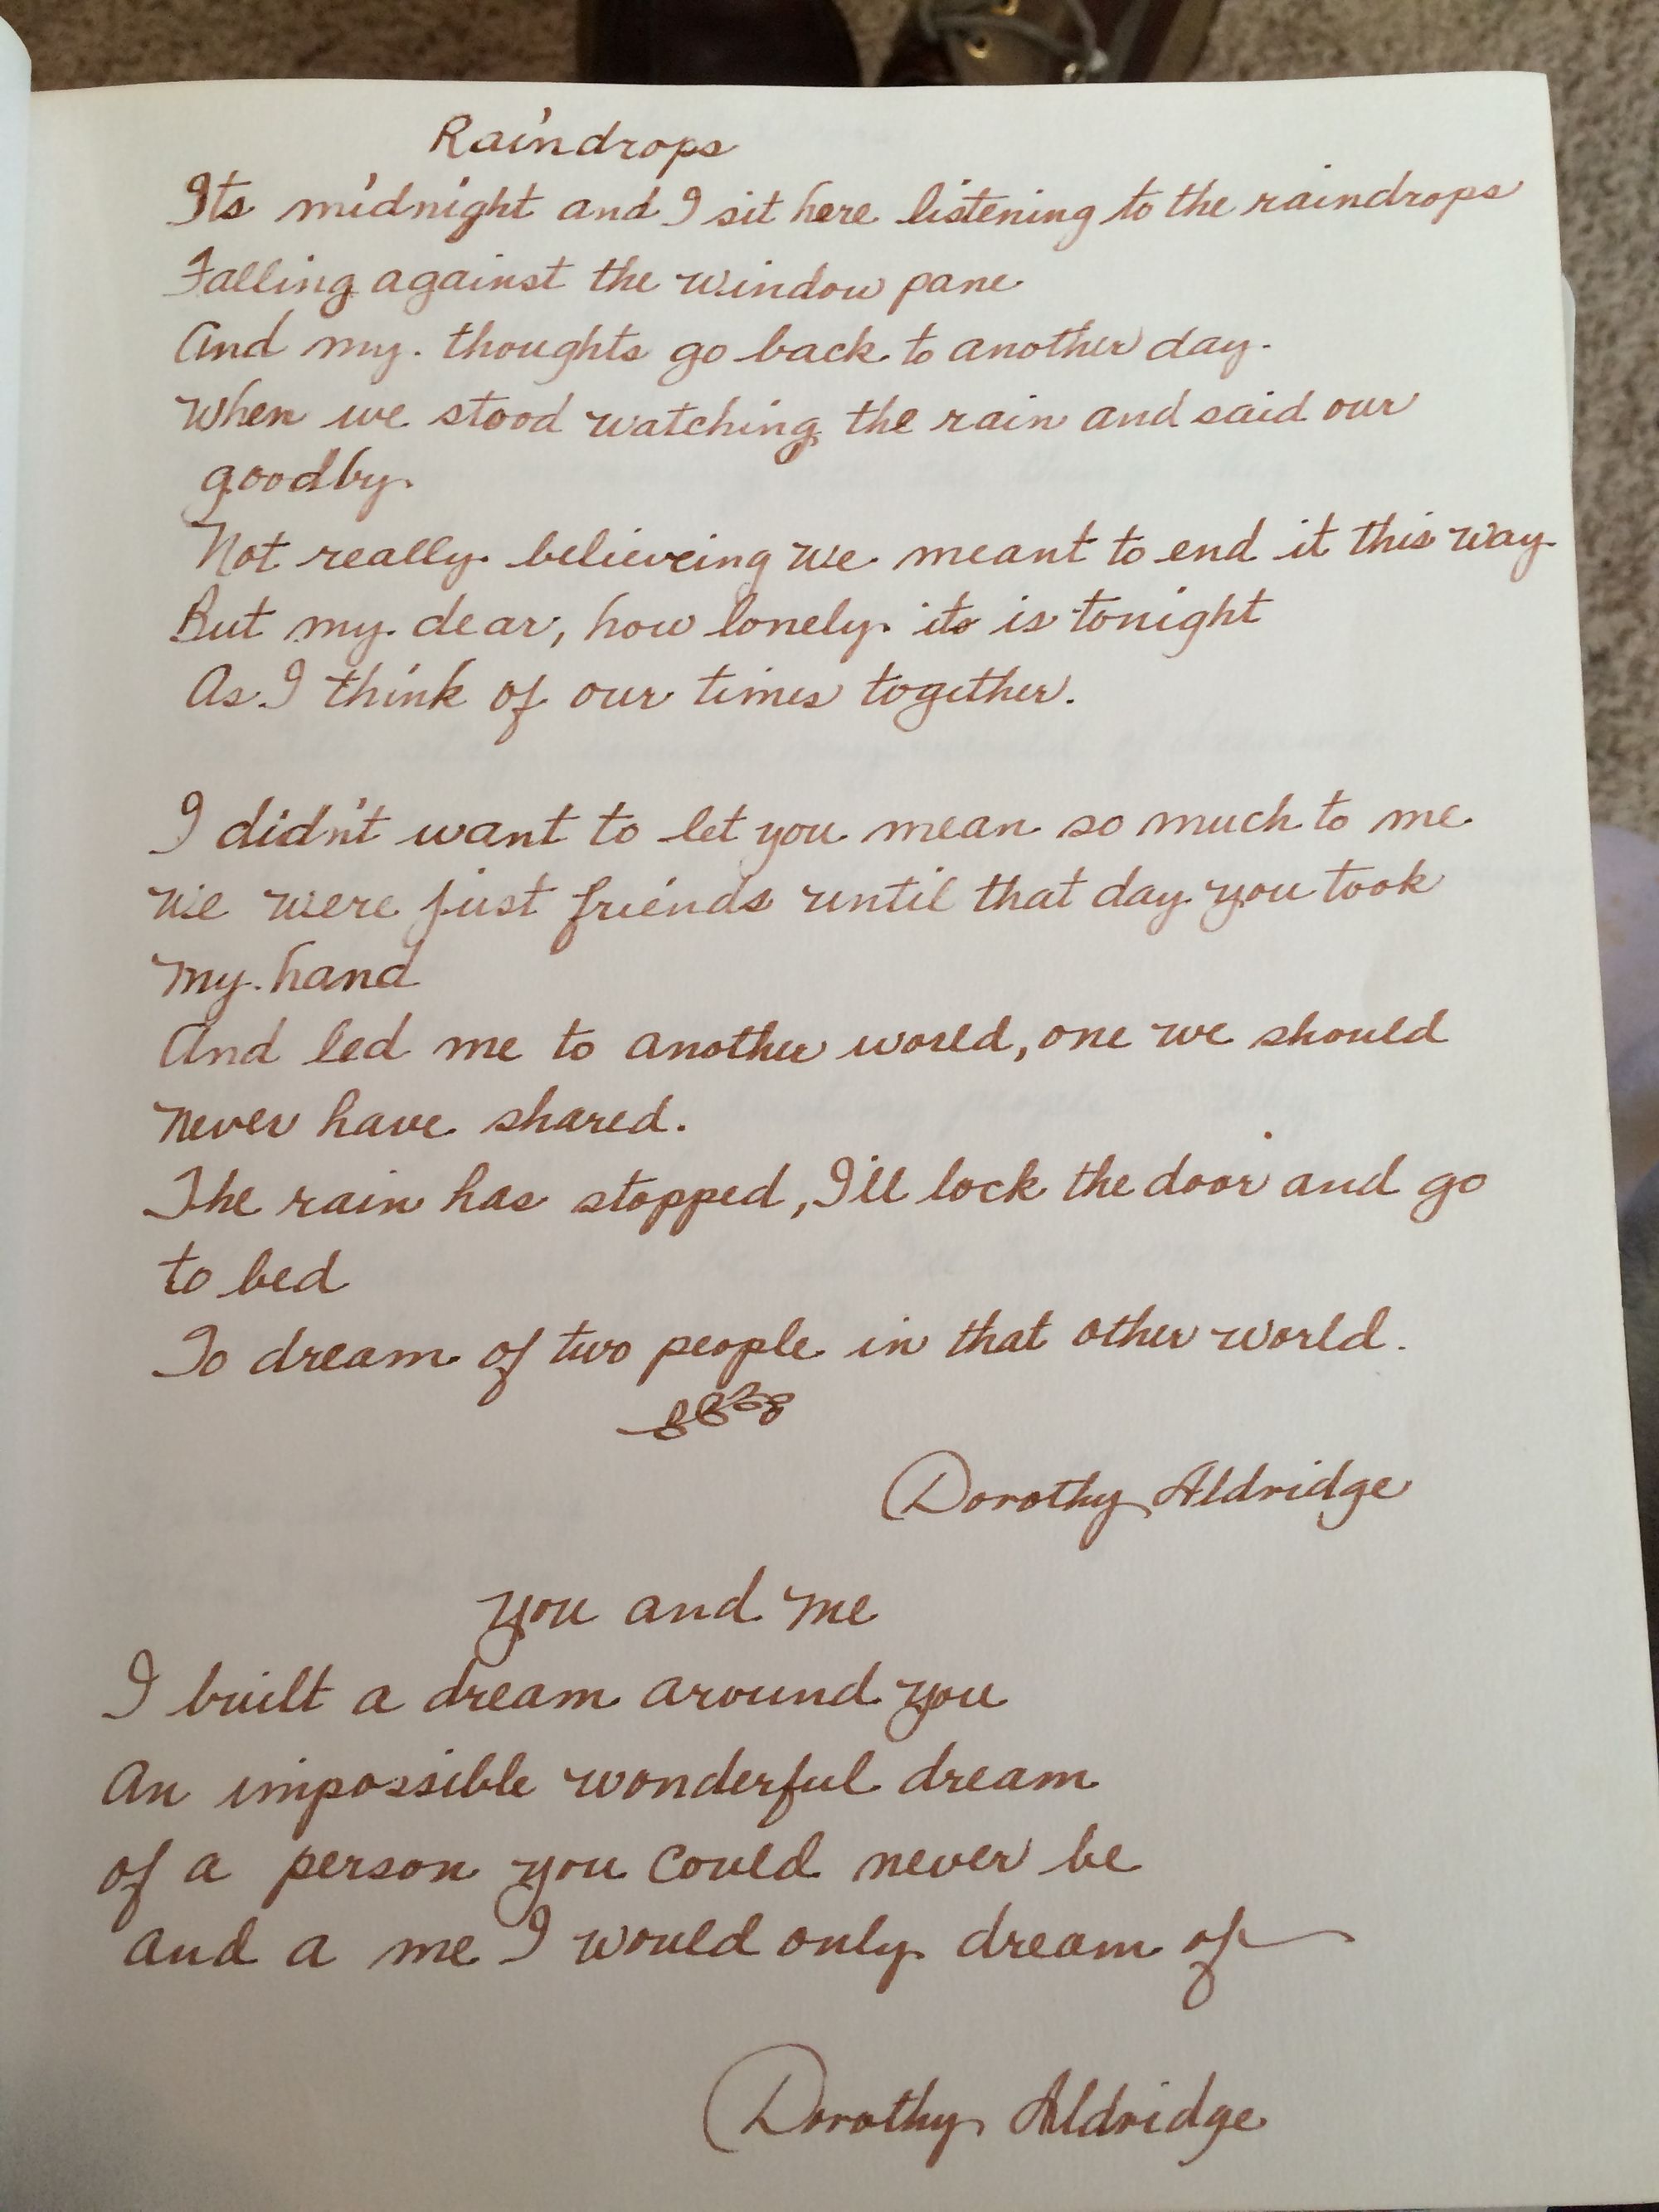 Raindrops
Its midnight and I sit here listening to the raindrops
Falling against the window pane
And my thoughts go back to another day.
When we stood watching the rain and said our
goodby.
Not really believeing we meant to end it this way
But my dear, how lonely its is tonight
As I think of our times together.
I didn't want to let you mean so much to me
We were just friends until that day you took
my hand
And led me to another world, one we should
never have shared.
The rain has stopped, I'll lock the door and go
to bed
To dream of two people in that other world.
Dorothy Aldridge
You and Me
I built a dream around you
An impossible wonderful dream
of a person you could never be
and a me I would only dream of
Dorothy Aldridge